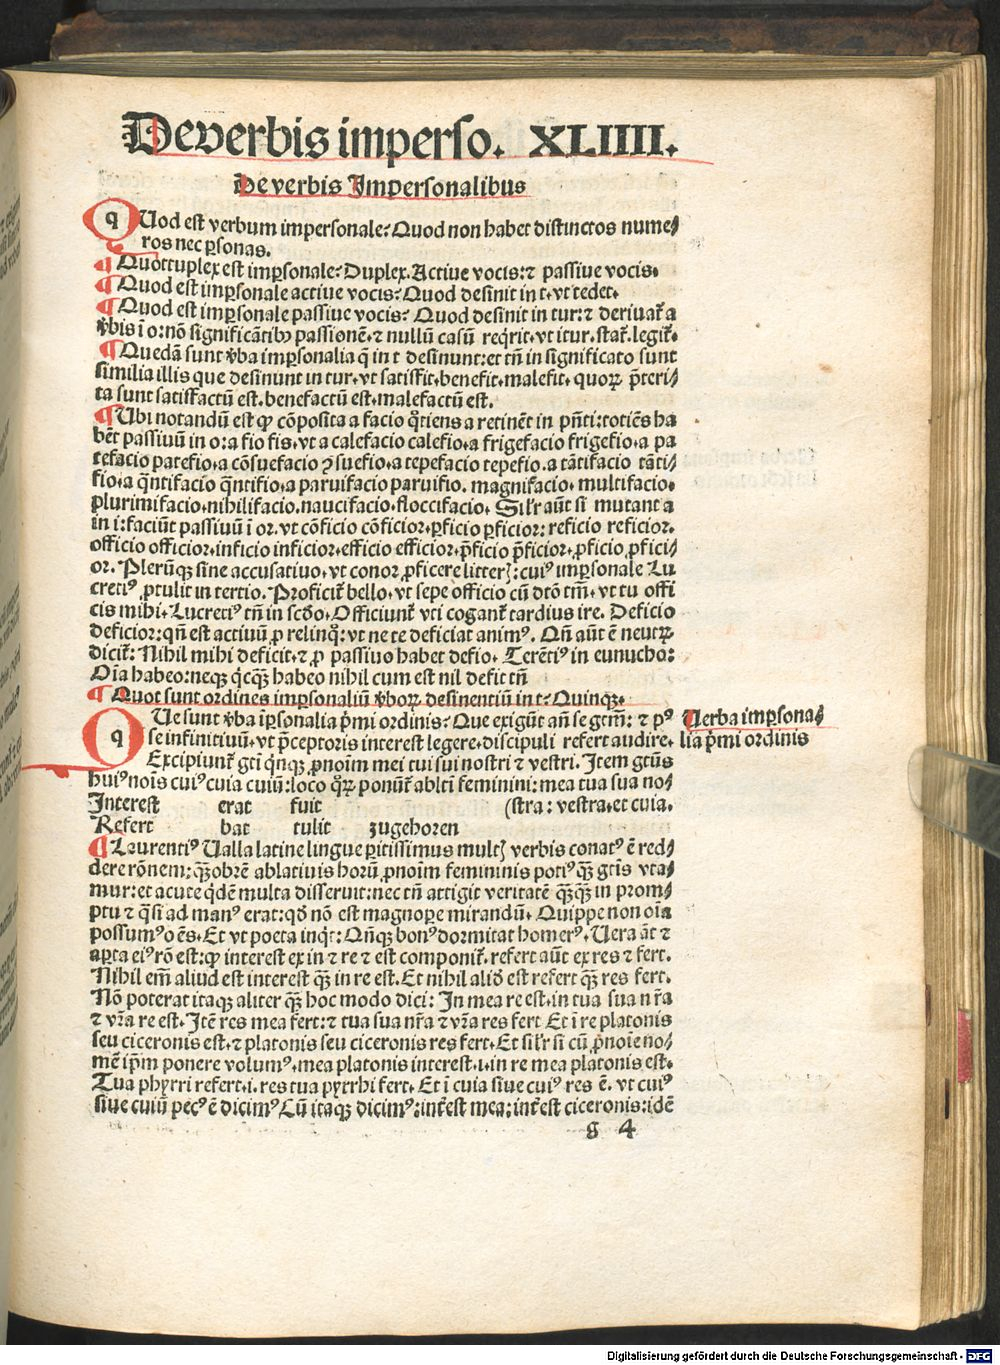 De verbis imperso. XLIIII.
De verbis Impersonalibus
qUod est verbum impersonale? Quod non habet distinctos nume⸗
ros nec ꝑsonas.
¶ Quottuplex est imꝑsonale? Duplex. Actiue vocis: ⁊ passiue vocis.
¶ Quod est imꝑsonale actiue vocis? Quod desinit in t. vt tedet.
¶ Quod est imꝑsonale passiue vocis? Quod desinit in tur: ⁊ deriuat᷑ a
v̓bis ī o: nō significātibꝰ passionē. ⁊ nullū casū reqͥrit. vt itur. stat᷑. legit᷑.
¶ Quedā sunt v̓ba imꝑsonalia q̄ in t desinunt: et tn̄ in significato sunt
similia illis que desinunt in tur. vt satisfit. benefit. malefit. quoꝝ p̄teri⸗
ta sunt satisfactū est. benefactū est. malefactū est.
¶ Ubi notandū est ꝙ cōposita a facio qͦtiens a retinēt in pn̄ti: totiēs ha
bēt passiuū in o: a fio fis. vt a calefacio calefio. a frigefacio frigefio. a pa
tefacio patefio. a cōsuefacio ꝯsuefio. a tepefacio tepefio. a tātifacio tāti⸗
fio. a qͣntifacio qͣntifio. a paruifacio paruifio. magnifacio. multifacio.
plurimifacio. nihilifacio. naucifacio. floccifacio. Sil'r aūt si mutant a
in i: faciūt passiuū ī or. vt cōficio cōficior. ꝑficio ꝑficior: reficio reficior.
officio officior. inficio inficior. efficio efficior. p̄ficio p̄ficior. ꝓficio ꝓfici⸗
or. Plerūqꝫ sine accusatiuo. vt conor ꝓficere litterꝭ: cuiꝰ imꝑsonale Lu
cretiꝰ ꝓtulit in tertio. Proficit᷑ bello. vt sepe officio cū dtō tm̄. vt tu offi
cis mihi. Lucretiꝰ tn̄ in scd̄o. Officiunt᷑ vti cogant᷑ tardius ire. Deficio
deficior: qn̄ est actiuū ꝓ relinqͦ: vt ne te deficiat animꝰ. Qn̄ aūt ē neutꝝ
dicit᷑: Nihil mihi deficit. ⁊ ꝓ passiuo habet defio. Terētiꝰ in eunucho:
Oīa habeo: neqꝫ qͥcqͣꝫ habeo nihil cum est nil defit tn̄
¶ Quot sunt ordines imꝑsonaliū v̓boꝝ desinentiū in t? Quinqꝫ.
qUe sunt v̓ba īꝑsonalia pͥmi ordinis? Que exigūt an̄ se gtm̄: ⁊ pꝰ
se infinitiuū. vt p̄ceptoris interest legere. discipuli refert audire.
Excipiunt᷑ gtī qͥnqꝫ ꝓnoīm mei tui sui nostri ⁊ vestri. Item gtūs
huiꝰ noīs cuiꝰ cuia cuiū: loco qͦꝝ ponūt᷑ ablti feminini: mea tua sua no⸗
Interest erat fuit (stra: vestra. et cuia.
Refert bat tulit zugehoren
Verba imꝑsona⸗
lia pͥmi ordinis
¶ Laurentiꝰ Ualla latine lingue ꝑitissimus multꝭ verbis conatꝰ ē red⸗
dere rōnem: qͣꝫobrē ablatiuis horū ꝓnoīm femininis potiꝰ qͣꝫ gtīs vta⸗
mur: et acute qͥdē multa disseruit: nec tn̄ attigit veritatē qͣꝫqͣꝫ in prom⸗
ptu ⁊ qͣsi ad manꝰ erat: qd̄ nō est magnoꝑe mirandū. Quippe non oīa
possumꝰ oēs. Et vt poeta inqͥt: Qn̄qꝫ bonꝰ dormitat homerꝰ. Uera āt ⁊
aꝑta eiꝰ rō est: ꝙ interest ex in ⁊ re ⁊ est componit᷑. refert aūt ex res ⁊ fert.
Nihil em̄ aliud est interest qͣꝫ in re est. Et nihil aliđ est refert qͣꝫ res fert.
Nō poterat itaqꝫ aliter qͣꝫ hoc modo dici: In mea re est. in tua sua nr̄a
⁊ vr̄a re est. Itē res mea fert: ⁊ tua sua nr̄a ⁊ vr̄a res fert Et ī re platonis
seu ciceronis est. ⁊ platonis seu ciceronis res fert. Et sil'r si cū ꝓnoīe no⸗
mē ip̄m ponere volumꝰ. mea platonis interest. i. in re mea platonis est.
Tua phyrri refert. i. res tua pyrrhi fert. Et ī cuia siue cuiꝰ res ē. vt cuiꝰ
siue cuiū pecꝰ ē dicimꝰ Cū itaqꝫ dicimꝰ: int̓est mea: int̓est ciceronis: idē
g 4
Digitalisierung gefördert durch die Deutsche Forschungsgemeinschaft - DFG